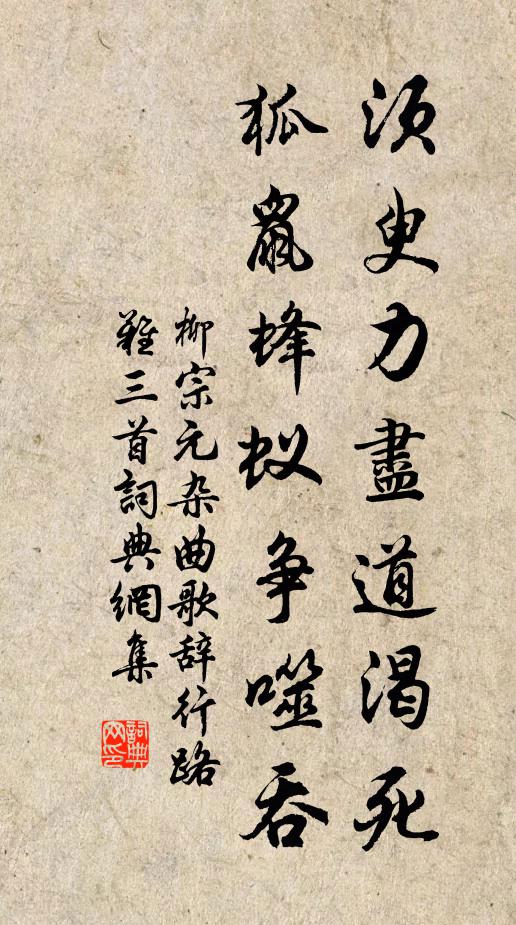 須臾力盡道渴死
狐鼠蜂蚁争噬吞
柳宗元杂曲歌辞行路
難三首詞典網集
詞典网印